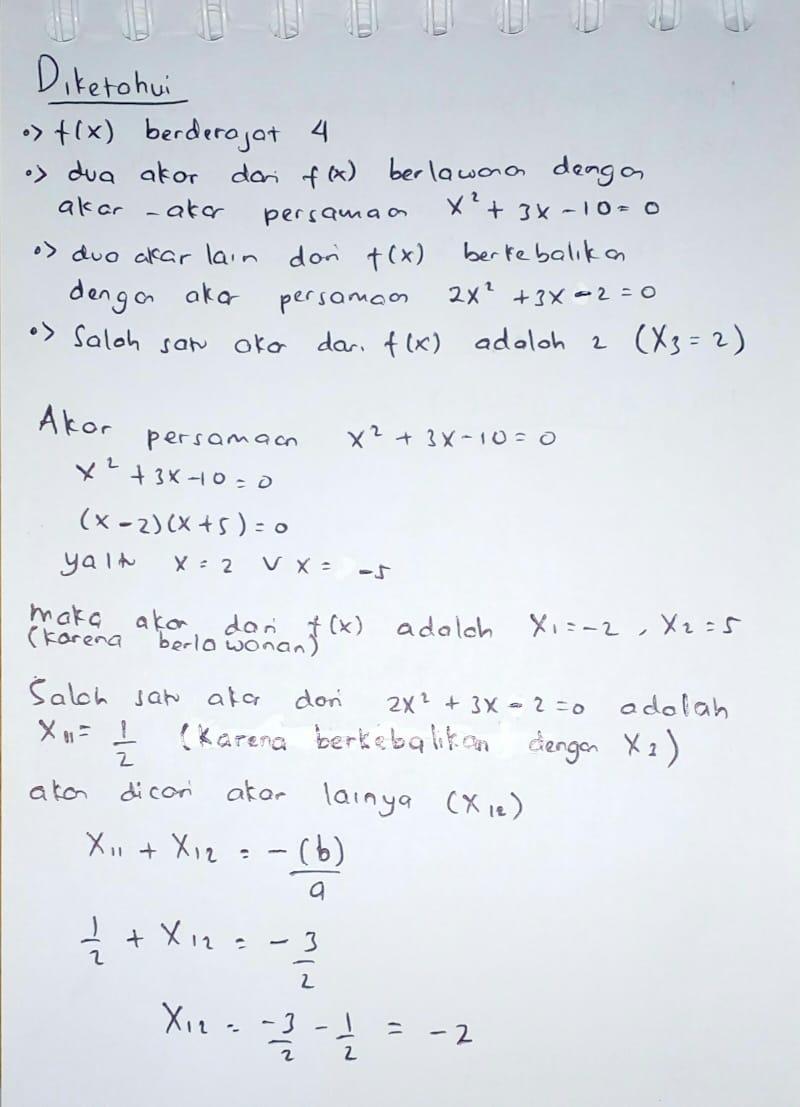 Diketahui
•> f(x) berderajat 4
•> dua akar dari f(x) berlawanan dengan
akar-akar persamaan x² + 3x - 10 = 0
•> dua akar lain dari f(x) berkebalikan
dengan akar persamaan 2x² + 3x - 2 = 0
•> Salah satu akar dari f(x) adalah 2 (X₃ = 2)
Akar persamaan x² + 3x - 10 = 0
x² + 3x - 10 = 0
(x - 2)(x + 5) = 0
yaitu x = 2 ∨ x = -5
maka akar dari f(x) adalah X₁ = -2, X₂ = 5
(karena berlawanan)
Salah satu akar dari 2x² + 3x - 2 = 0 adalah
X₁₁ = 1/2 (karena berkebalikan dengan X₃)
akan dicari akar lainya (X₁₂)
X₁₁ + X₁₂ = -(b)/a
1/2 + X₁₂ = -3/2
X₁₂ = -3/2 - 1/2 = -2